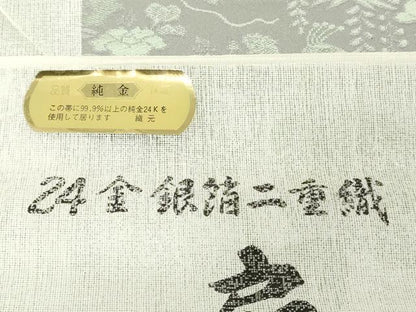 品質 純金
この帯に99.9%以上の純金24Kを
使用して居ります 織元
24金銀箔二重織